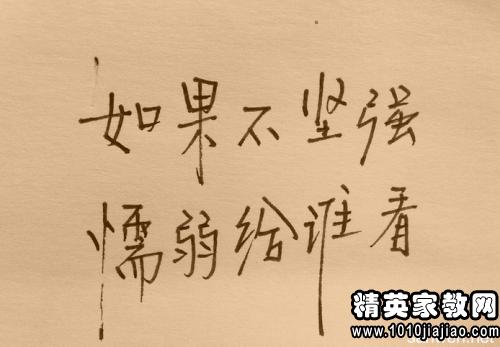 如果不坚强
懦弱给谁看
精英家教网
www.1010jiajiao.com